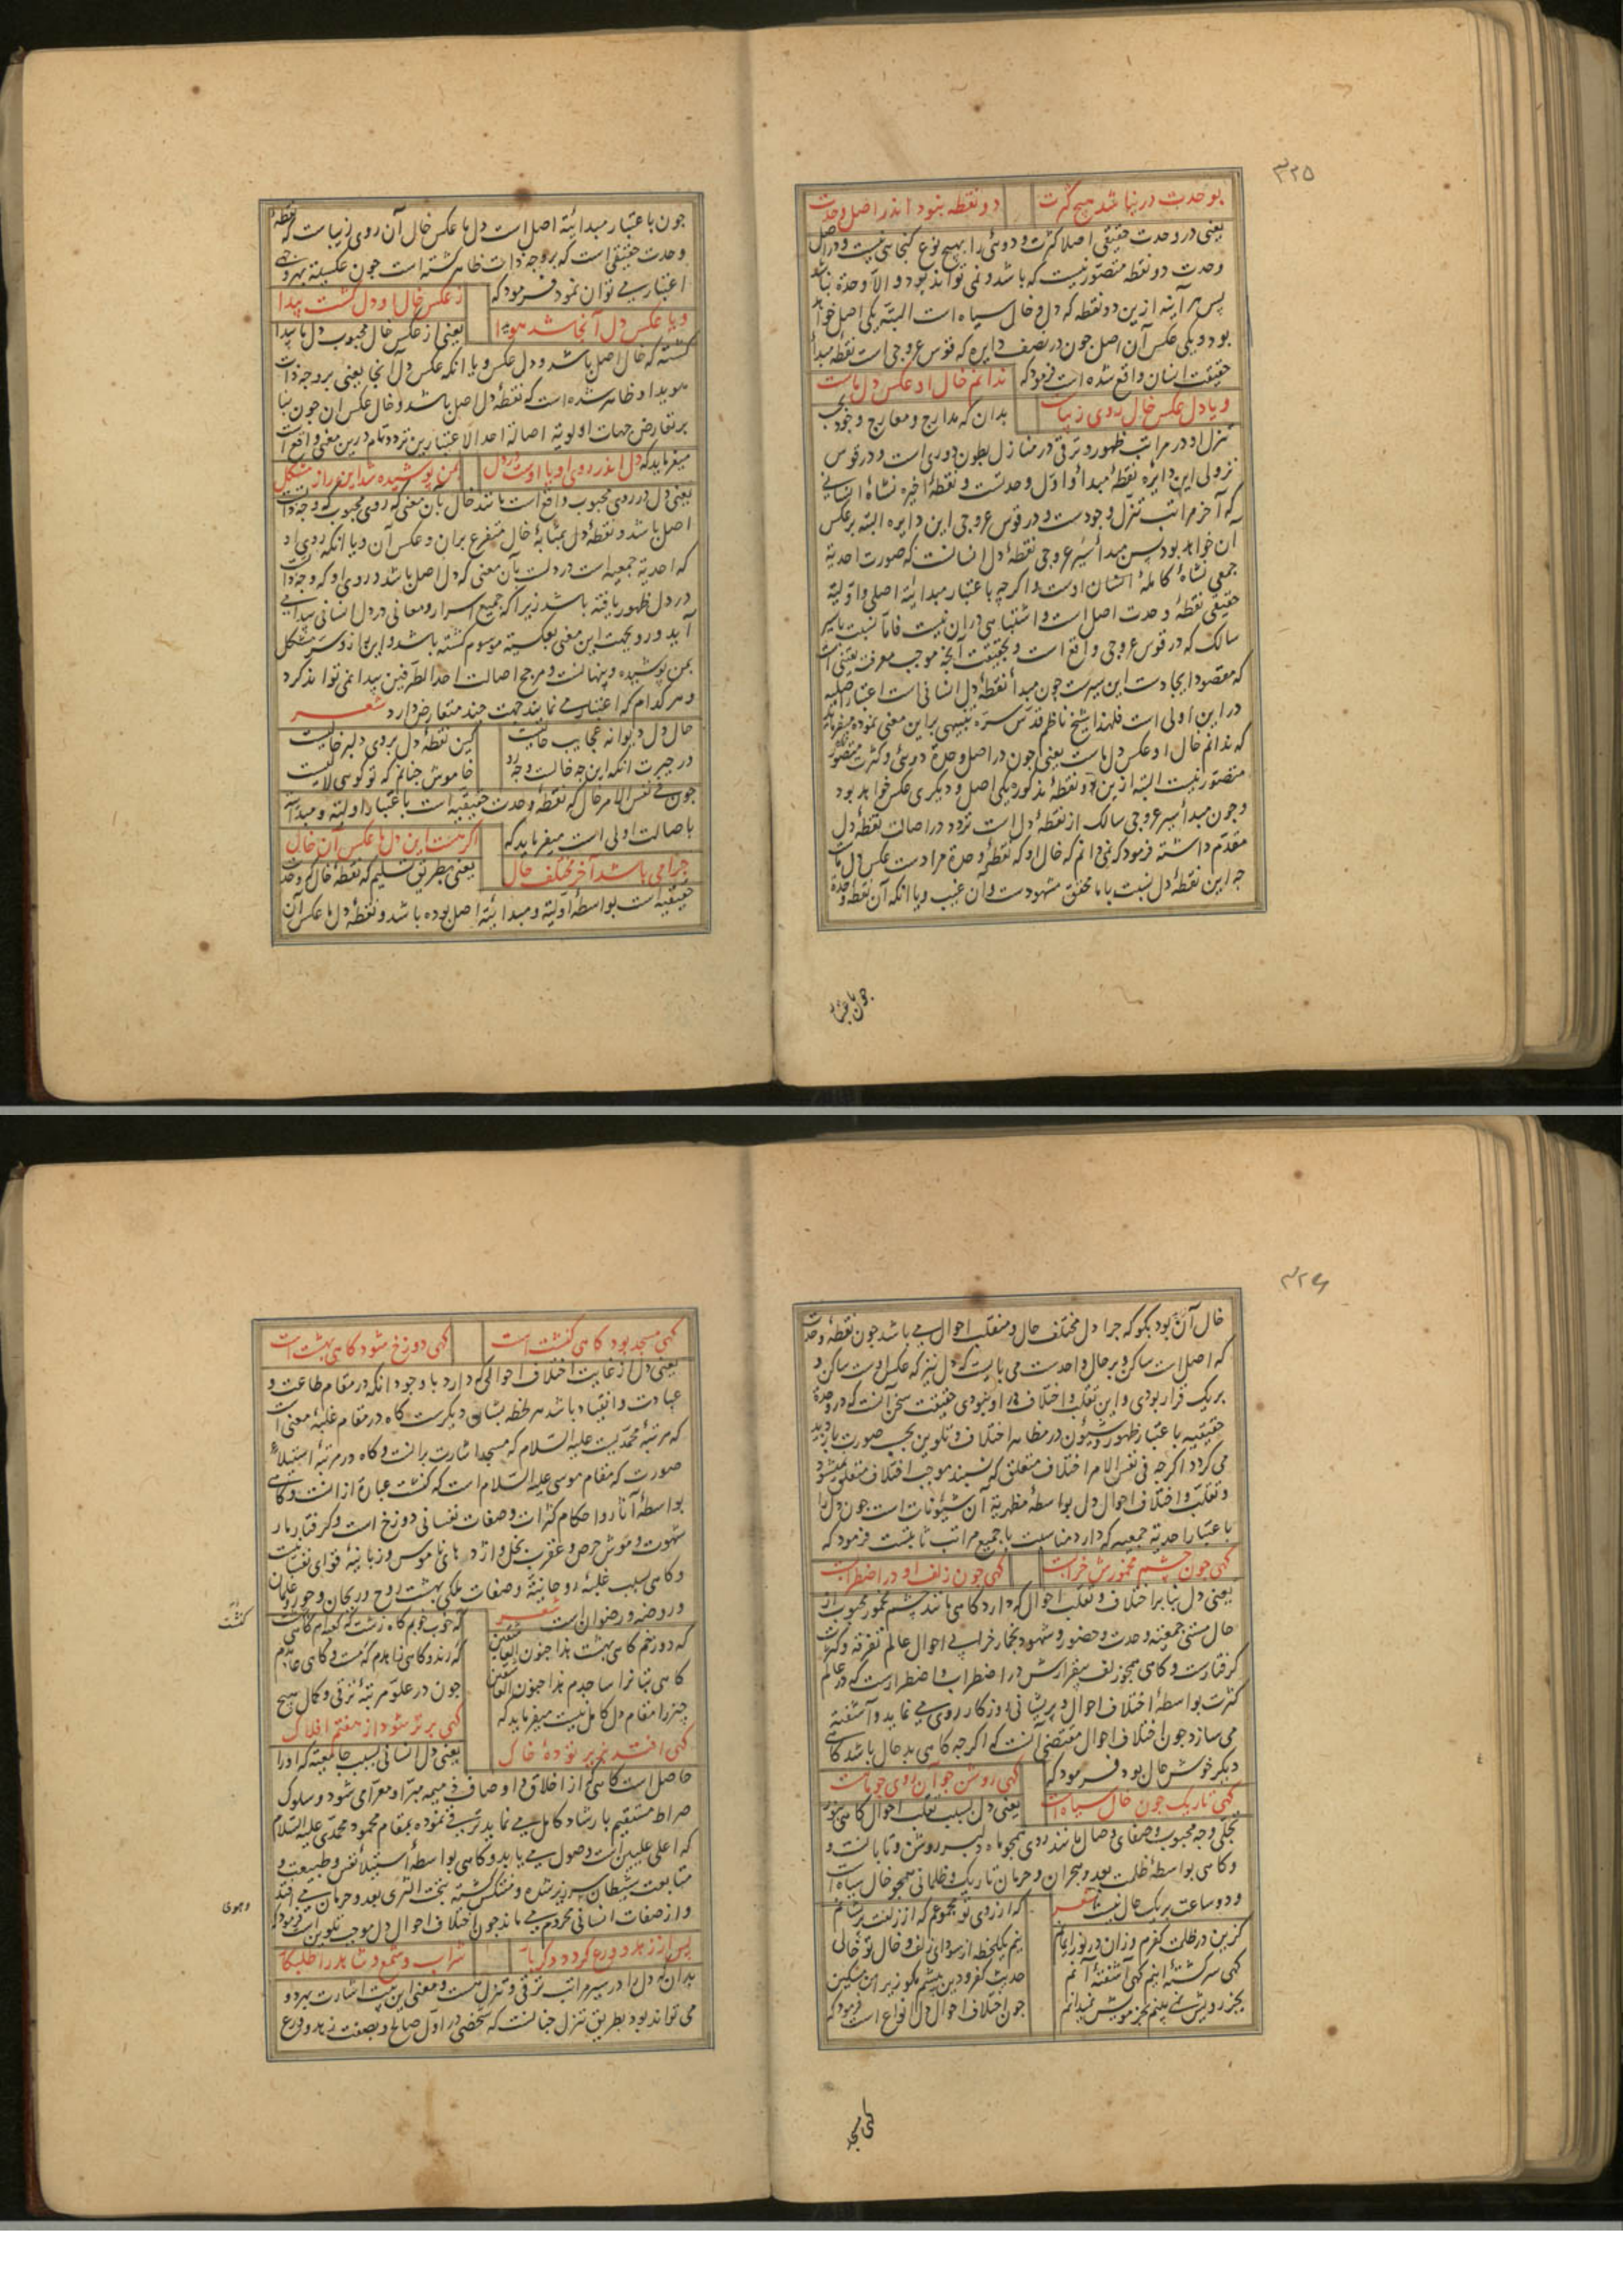 ۳۲۵
بوحدت در نباشد هیچ کثرت دو نقطه نبود اندر اصل وحدت
یعنی در وحدت حقیقی اصلا کثرت و دوئی را بهیچ نوع کنجایی نیست و در اصل
وحدت دو نقطه متصور نیست که باشد و نمی تواند بود و الا وحدة نباشد
پس هر آینه ازین دو نقطه که دل و خال سیاه است البته یکی اصل خواهد
بود و یکی عکس آن اصل جون در نصف دایره که قوس عروجی است نقطه مبدأ
حقیقت انسان واقع شده است فرمود که ندانم خال او عکس دل ماست
ویا دل عکس خال روی زیباست بدان که مدارج و معارج وجود بحسب
تنزل او در مراتب ظهور و ترقی در منازل بطون دوری است و در قوس
نزولی این دایره نقطهٔ مبدأ و اول وحدتست و نقطهٔ اخیره نشاهٔ انسانی
که آخر مراتب تنزل وجودست و در قوس عروجی این دایره البته برعکس
آن خواهد بود پس مبدأ سیر عروجی نقطهٔ دل انسانست که صورت احدیة
جمعی نشاهٔ کاملهٔ انسان اوست و اکرچه باعتبار مبدائیة اصلی و اولیة
حقیقی نقطهٔ وحدت اصل است و اشتباهی دران نیست فاما نسبت با سیر
سالک که در قوس عروجی واقع است و بحقیقت آنچه موجب معرفت یقینی است
که مقصود ایجادست این سیرست چون مبدأ نقطهٔ دل انسانی است اعتبار اصلیه
در این اولی است فلهذا شیخ ناظم قدس سره تنبیهی براین معنی نموده میفرماید
که ندانم خال او عکس دل ماست یعنی جون در اصل وحدة دوئی و کثرت متصور
متصور نیست البته ازین دو نقطهٔ مذکوره یکی اصل و دیکری عکس خواهد بود
و چون مبدأ سیر عروجی سالک از نقطهٔ دل است تردد در اصالت نقطهٔ دل
مقدم داشته فرمود که نمی دانم که خال او که نقطهٔ وحدة مرادست عکس دل ماست
چه این نقطهٔ دل نسبت با ما محقق مشهودست و آن غیب ویا انکه آن نقطهٔ وحدة
جون باعتبار
جون باعتبار مبدائیة اصل است دل ما عکس خال آن روی زیباست که نقطهٔ
وحدت حقیقی است که بر وجه ذات ظاهر کشته است جون عکسیة بهر وجهی
اعتبار می توان نمود فرمود که ز عکس خال او دل کشت پیدا
ویا عکس دل آنجا شد هویدا یعنی از عکس خال محبوب دل ما پیدا
کشته که خال اصل باشد و دل عکس ویا انکه عکس دل آنجا یعنی بر وجه ذات
هویدا و ظاهر شده است که نقطهٔ دل اصل باشد و خال عکس ان جون بنا
بر تعارض جهات اولویة اصالة احد الاعتبارین تردد تام درین معنی واقع است
میفرماید که دل اندر روی او یا اوست در دل بمن پوشیده شد این راز مشکل
یعنی دل در روی محبوب واقع است مانند خال بآن معنی که روی محبوب که وجه ذات است
اصل باشد و نقطهٔ دل بمثابهٔ خال متفرع بران و عکس آن ویا انکه روی او
که احدیة جمعیه است در دلست بآن معنی که دل اصل باشد و روی او که وجه ذات
در دل ظهور یافته باشد زیرا که جمیع اسرار و معانی در دل انسانی پیدا می
آید و روی بجهت این معنی بعکسیة موسوم کشته باشد و این راز و سر مشکل
بمن پوشیده و پنهانست و مرجح اصالت احد الطرفین پیدا نمی تواند کرد
و هر کدام که اعتبار می نمایند جهت چند متعارض دارد شعر
حال دل دیوانه عجایب حالیست کین نقطهٔ دل بروی دلبر خالیست
در حیرت انکه این چه خالست و چه رو خاموش چنانم که تو کوئی لالیست
جون فی نفس الامر خال که نقطهٔ وحدت حقیقیه است باعتبار اولیة و مبدائیة
باصالت اولی است میفرماید که اکر هست این دل ما عکس آن خال
چرا می باشد آخر مختلف حال یعنی بطریق تسلیم که نقطهٔ خال که وحدت
حقیقیه است بواسطهٔ اولیة و مبدائیة اصل بوده باشد و نقطهٔ دل ما عکس آن
۳۲۶
خال آن بود بکو که چرا دل مختلف حال و منقلب احوال می باشد جون نقطهٔ وحدت
که اصل است ساکن و بر حال واحدست می بایست که دل نیز که عکس اوست ساکن و
بر یک قرار بودی و این تقلب و اختلاف در او نبودی حقیقت سخن آنست که در وحدة
حقیقیه باعتبار ظهور و شیون در مظاهر اختلاف و تلوین بحسب صورت بادید
می کردد اکرچه فی نفس الامر اختلاف متعلق که نسبند موجب اختلاف متعلق نمیشود
و تقلب و اختلاف احوال دل بواسطهٔ مظهریة آن شیونات است جون دل را
باعتبار احدیة جمعیه که دارد مناسبت با جمیع مراتب ثابتست فرمود که
کهی جون چشم مخمورش خرابست کهی جون زلف او در اضطرابست
یعنی دل بنابر اختلاف و تقلب احوال که دارد کاهی مانند چشم مخمور محبوب از
حال مستی جمعیة وحدت و حضور و شهود بخمار خرابی احوال عالم تفرقه و کثرت
کرفتارست و کاهی همچو زلف بیقرارش در اضطراب و اضطرارست که در عالم
کثرت بواسطهٔ اختلاف احوال و پریشانی روزکار روی می نماید و آشفته
می سازد جون اختلاف احوال مقتضی آنست که اکرچه کاهی بد حال باشد کاهی
دیکر خوش حال بود فرمود که کهی روشن جو آن روی جو ماهست
کهی تاریک جون خال سیاهست یعنی دل بسبب تقلب احوال کاهی بنور
تجلی وجه محبوب و صفای وصال مانند روی همچو ماه دلبر روشن و تابانست و
و کاهی بواسطهٔ ظلمت بعد و هجران و حرمان تاریک و ظلمانی همچو خال سیاه است
و دو ساعت بر یک حال نیست شعر که از روی تو مجموعم که از زلفت پریشانم
کزین در ظلمت کفرم وزان در نور ایمانم نیم یکلحظه از سودای زلف و خال تو خالی
کهی سرکشتهٔ اینم کهی آشفتهٔ آنم حدیث کفر و دین پیشم مکو زیرا من مسکین
بجز رویش نمی بینم بجز مویش نمیدانم جون اختلاف احوال دل انواع است فرمود که
کهی مسجد
کهی مسجد بود کاهی کنشت است کهی دوزخ شود کاهی بهشت است
یعنی دل از غایت اختلاف احوالی که دارد با وجود انکه در مقام طاعت و
عبادت و انقیاد باشد هر لحظه بشان دیکرست کاه در مقام غلبهٔ معنی است
که مرتبهٔ محمدیست علیه السلام که مسجد اشارت برانست و کاه در مرتبهٔ استیلاء
صورت که مقام موسی علیه السلام است که کنشت عبارة از انست و کاهی
بواسطهٔ آثار و احکام کثرات و صفات نفسانی دوزخ است و کرفتار مار
شهوت و موش حرص و عقرب بخل و اژدهای ناموس و زبانیهٔ قوای نفسانیست
و کاهی بسبب غلبهٔ روحانیة و صفات ملکی بهشت روح و ریحان و حور و غلمان
و روضه و رضوان است شعر که خوب خوبم کاه زشت که کعبه ام کاهی کنشت
که دوزخم کاهی بهشت هذا جنون العاشقین که رند و کاهی زاهدم که مست و کاهی عابدم
کاهی بتانرا ساجدم هذا جنون العاشقین جون در علو مرتبهٔ ترقی و کمال هیچ
چیز را مقام دل کامل نیست میفرماید که کهی برتر شود از هفتم افلاک
کهی افتد بزیر تودهٔ خاک یعنی دل انسانی بسبب جامعیة که او را
حاصل است کاهی که از اخلاق و اوصاف ذمیمه مبرا و معرا می شود و سلوک
صراط مستقیم بارشاد کامل می نماید ترقی نموده بمقام محمود محمدی علیه السلام
که اعلی علیین است وصول می یابد و کاهی بواسطهٔ استیلاء نفس و طبیعت و
متابعت شیطان سرزیر شده و منتکس کشته بتحت الثری بعد و حرمان می افتد
و از صفات انسانی محروم می ماند جون اختلاف احوال دل موجب تلوین است فرمود که
پس از زهد و ورع کردد دکر بار شراب و شمع و شاهد را طلبکار
بدان که دل را در سیر مراتب ترقی و تنزل هست و معنی این بیت اشارت بهر دو
می تواند بود بطریق تنزل چنانست که شخصی در اول صالح و بصفت زهد و ورع
کنشت
وهوی